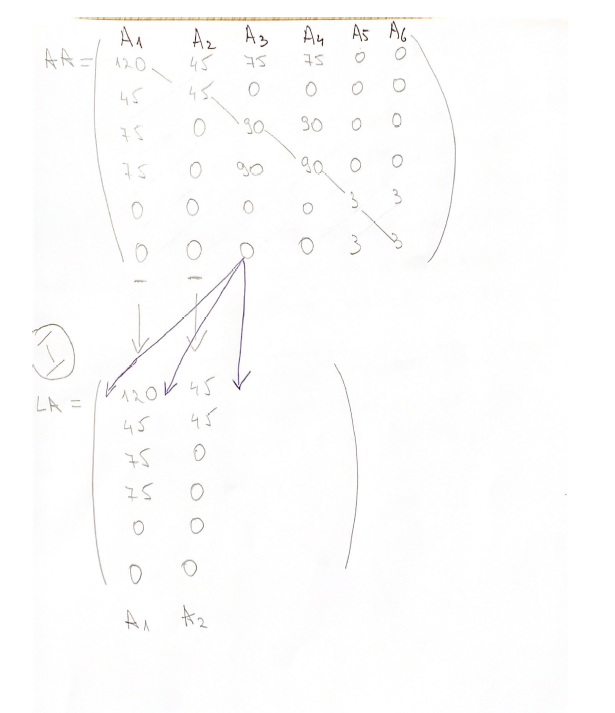 A1 A2 A3 A4 A5 A6
AA = 120 45 75 75 0 0
45 45 0 0 0 0
75 0 90 90 0 0
75 0 90 90 0 0
0 0 0 0 3 3
0 0 0 0 3 3
1
LA = 120 45
45 45
75 0
75 0
0 0
0 0
A1 A2